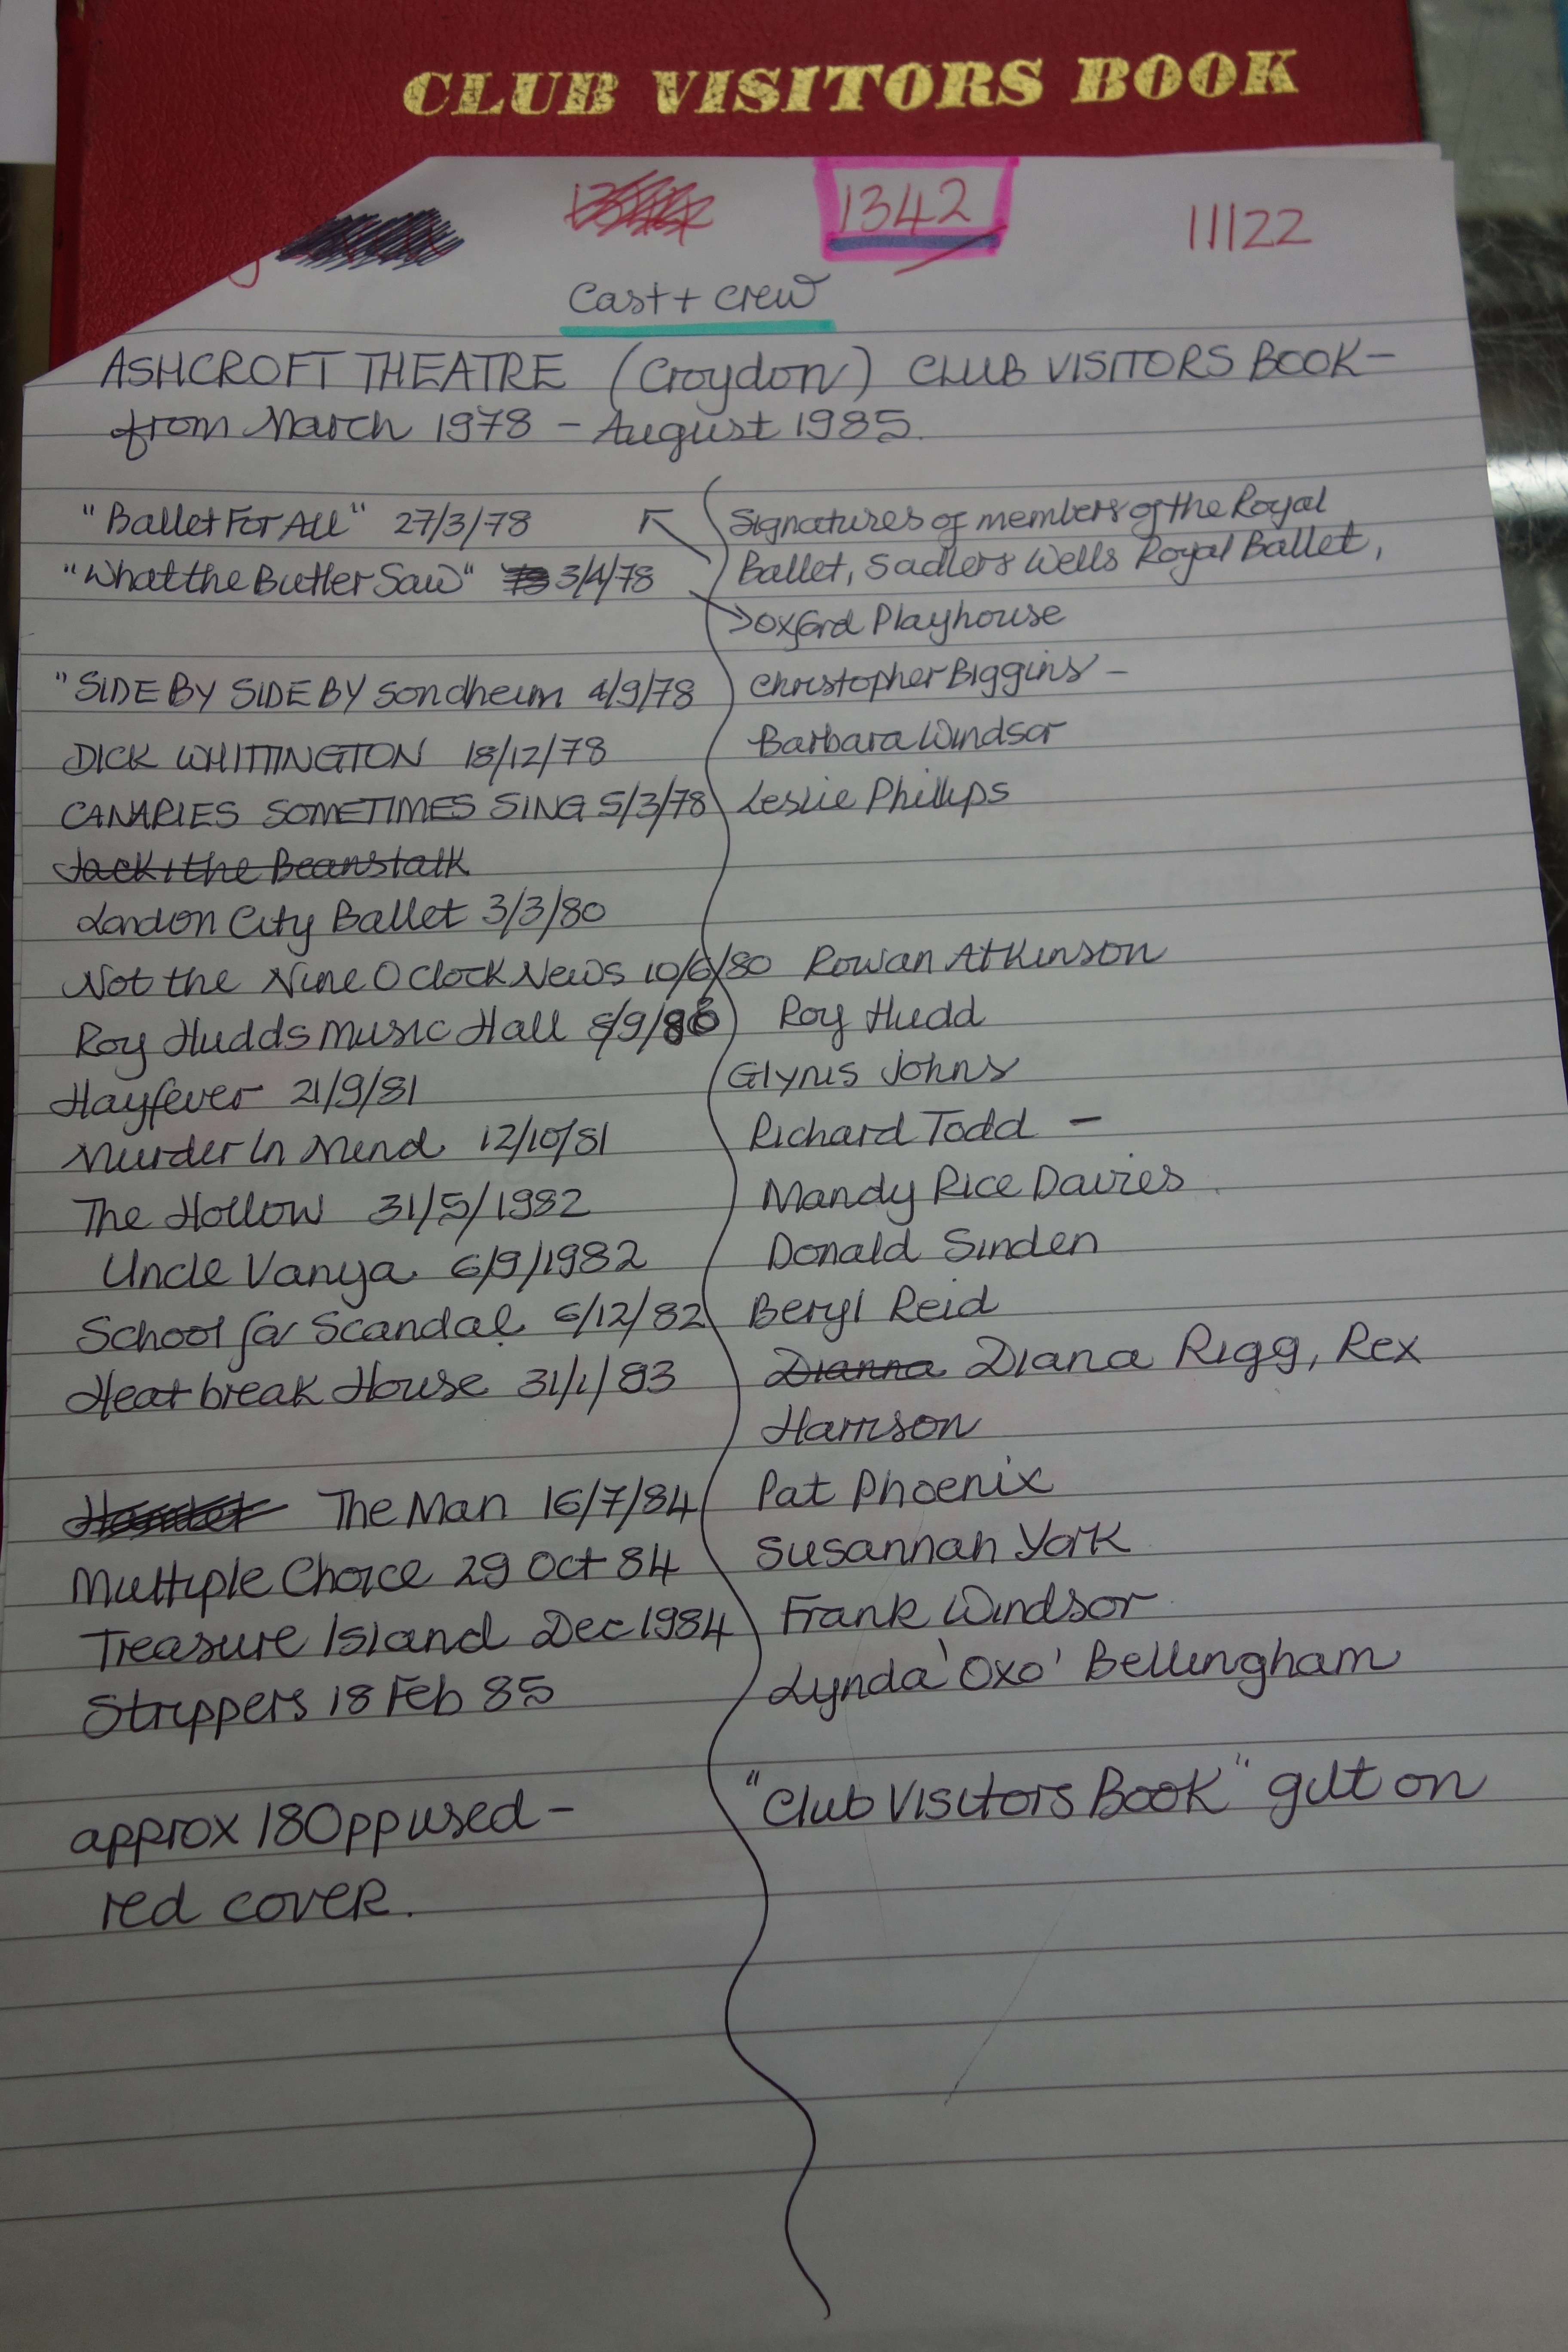 CLUB VISITORS BOOK
1342 11122
Cast + crew
ASHCROFT THEATRE (Croydon) CLUB VISITORS BOOK -
from March 1978 - August 1985.
"Ballet For All" 27/3/78 Signatures of members of the Royal
"What the Butler Saw" 3/4/78 Ballet, Sadlers Wells Royal Ballet,
Oxford Playhouse
"SIDE BY SIDE BY Sondheim 4/9/78 Christopher Biggins -
DICK WHITTINGTON 18/12/78 Barbara Windsor
CANARIES SOMETIMES SING 5/3/78 Leslie Phillips
Jack + the Beanstalk
London City Ballet 3/3/80
Not the Nine O Clock News 10/6/80 Rowan Atkinson
Roy Hudds Music Hall 8/9/80 Roy Hudd
Hayfever 21/9/81 Glynis Johns
Murder In Mend 12/10/81 Richard Todd -
The Hollow 31/5/1982 Mandy Rice Davies
Uncle Vanya 6/9/1982 Donald Sinden
School for Scandal 6/12/82 Beryl Reid
Heatbreak House 31/1/83 Dianna Diana Rigg, Rex
Harrison
The Man 16/7/84 Pat Phoenix
Multiple Choice 29 Oct 84 Susannah York
Treasure Island Dec 1984 Frank Windsor
Strippers 18 Feb 85 Lynda 'Oxo' Bellingham
approx 180pp used - "Club Visitors Book" gilt on
red cover.